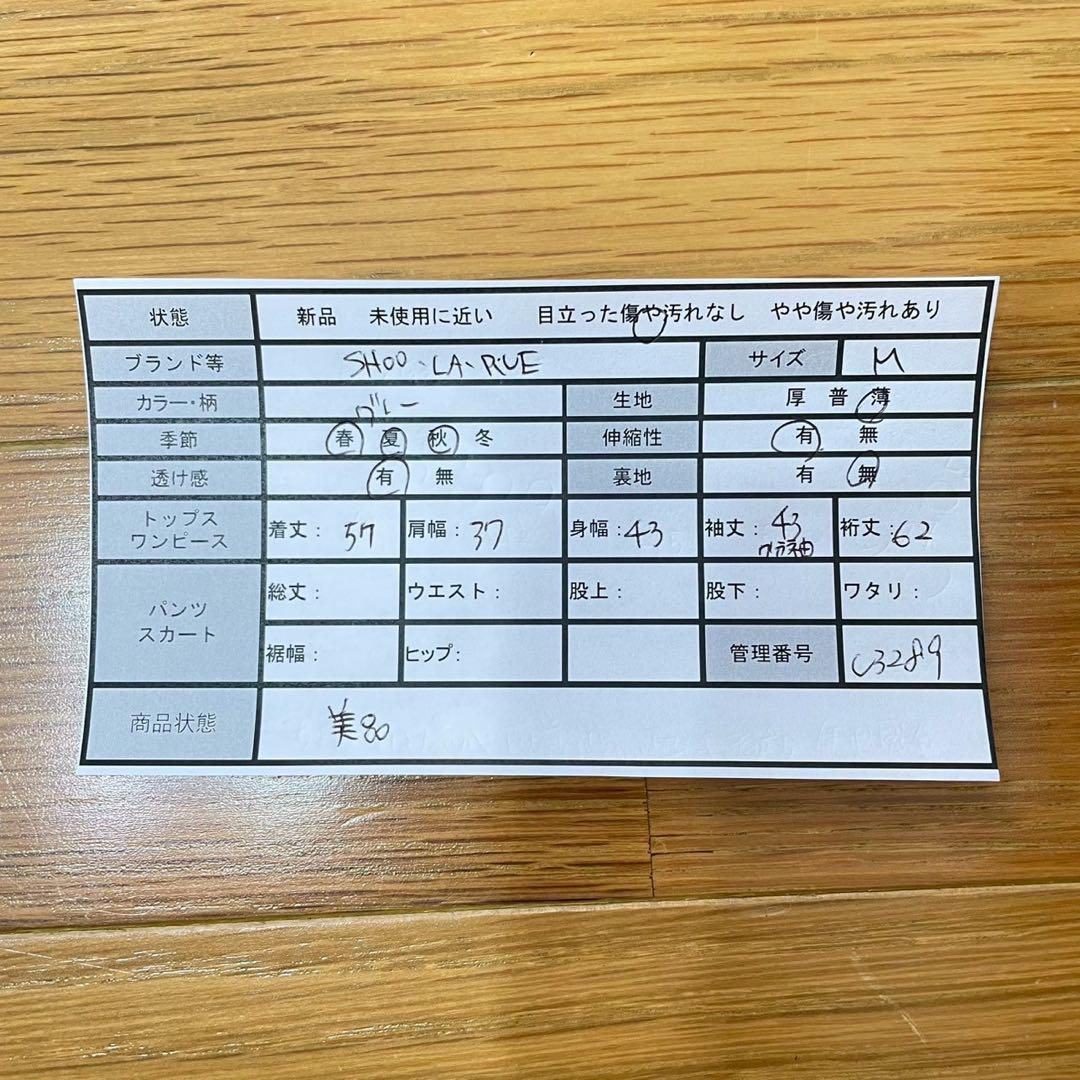 状態 新品 未使用に近い 目立った傷や汚れなし やや傷や汚れあり
ブランド等 SHOO・LA・RUE サイズ M
カラー・柄 グレー 生地 厚 普 薄
季節 春 夏 秋 冬 伸縮性 有 無
透け感 有 無 裏地 有 無
トップス
ワンピース
着丈: 57 肩幅: 37 身幅: 43 袖丈: 43 裄丈: 62
パンツ
スカート
総丈: ウエスト: 股上: 股下: ワタリ:
裾幅: ヒップ: 管理番号 C3289
商品状態 美80